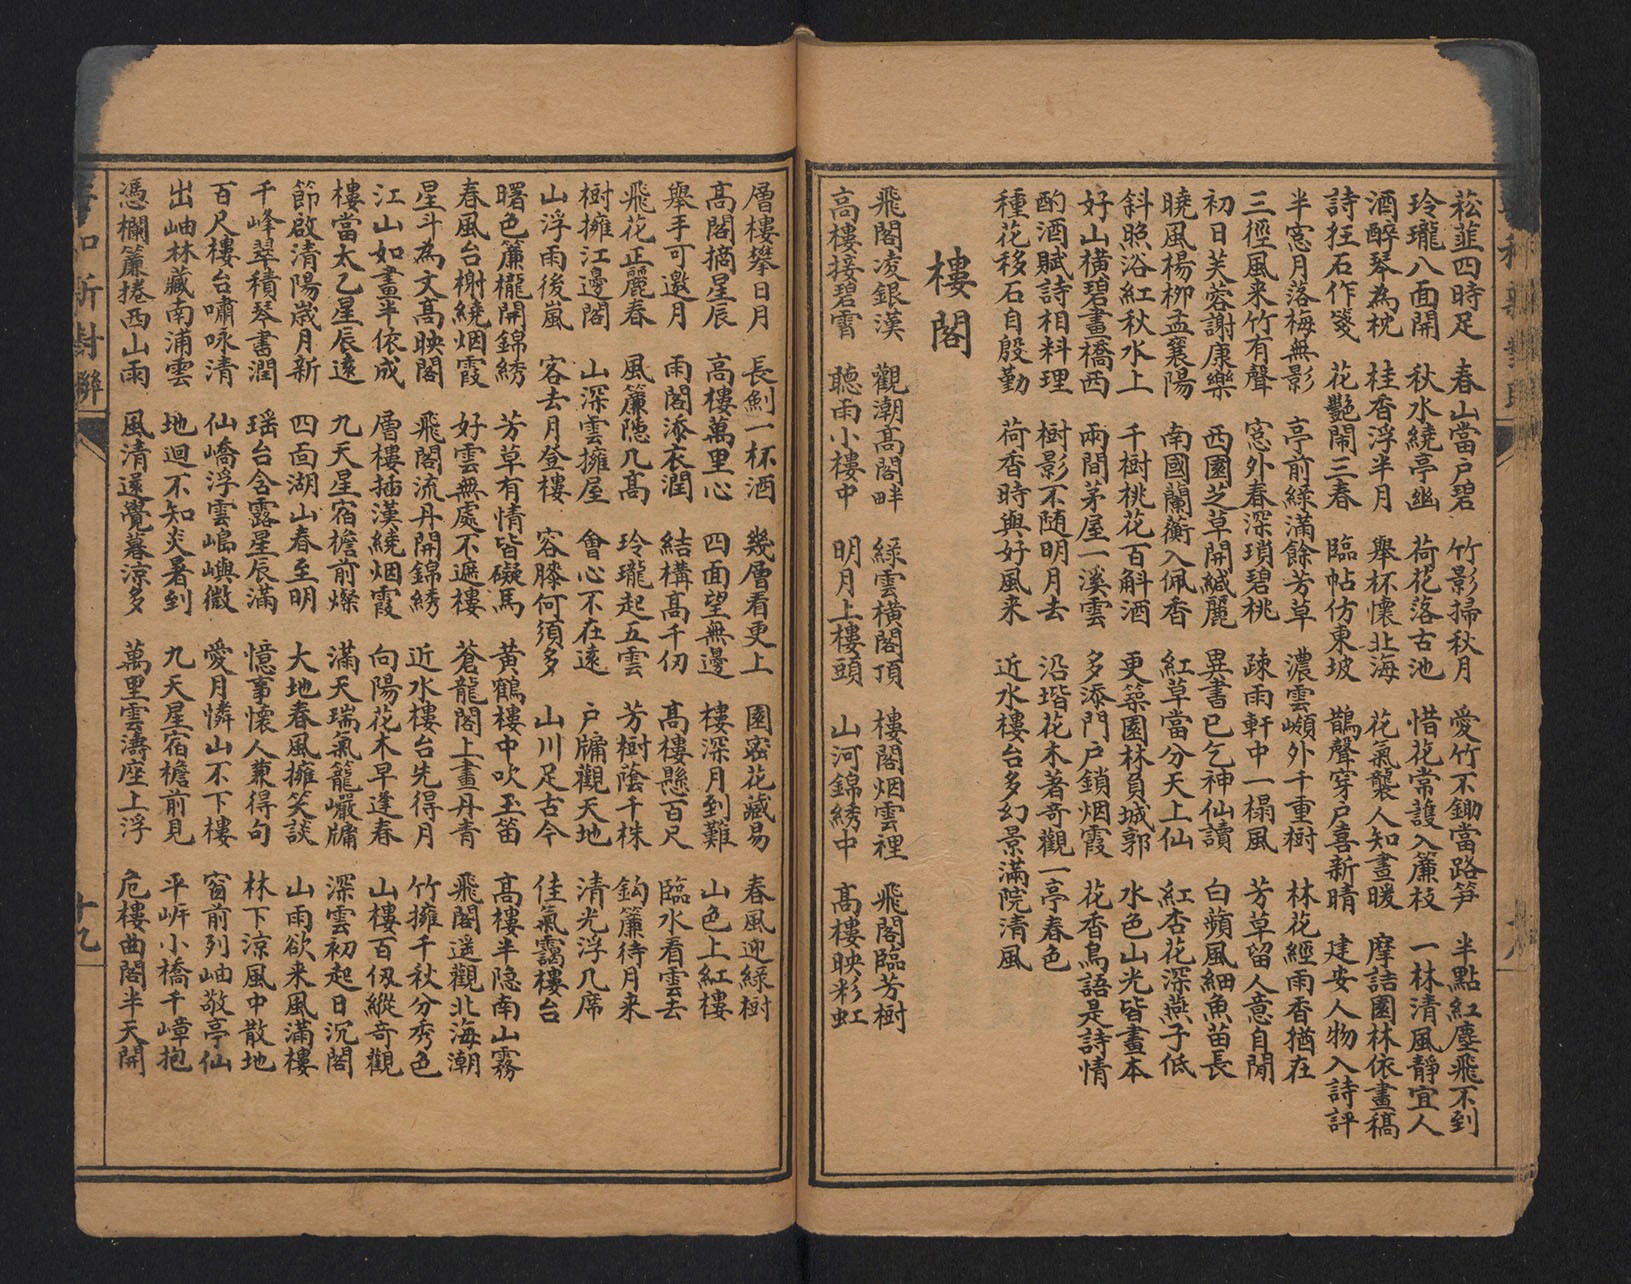 菘韮四時足　春山當户碧　竹影掃秋月　愛竹不鋤當路笋　半點紅塵飛不到
玲瓏八面開　秋水繞亭幽　荷花落古池　惜花常護入簾枝　一林清風靜宜人
酒醉琴為枕　桂香浮半月　舉杯懷北海　花氣襲人知晝暖　摩詰園林依畫稿
詩狂石作箋　花艷鬧三春　臨帖仿東坡　鵲聲穿户喜新晴　建安人物入詩評
半窓月落梅無影　亭前綠滿餘芳草　濃雲嶺外千重樹　林花經雨香猶在
三徑風来竹有聲　窓外春深瑣碧桃　疎雨軒中一榻風　芳草留人意自閒
初日芙蓉謝康樂　西園芝草開緘麗　異書已乞神仙讀　白蘋風細魚苗長
曉風楊柳孟襄陽　南國蘭蘅入佩香　紅草當分天上仙　紅杏花深燕子低
斜照浴紅秋水上　千樹桃花百斛酒　更築園林負城郭　水色山光皆畫本
好山橫碧畫橋西　兩間茅屋一溪雲　多添門户鎖烟霞　花香鳥語是詩情
酌酒賦詩相料理　樹影不随明月去　沿堦花木著竒觀　一亭春色
種花移石自殷勤　荷香時與好風来　近水樓台多幻景　滿院清風
樓閣
飛閣凌銀漢　觀潮髙閣畔　綠雲橫閣頂　樓閣烟雲裡　飛閣臨芳樹
高樓接碧霄　聽雨小樓中　明月上樓頭　山河錦綉中　髙樓映彩虹
層樓攀日月　長劍一杯酒　幾層看更上　園密花藏易　春風迎綠樹
髙閣摘星辰　高樓萬里心　四面望無邊　樓深月到難　山色上紅樓
舉手可邀月　雨閣添衣潤　結構髙千仞　髙樓懸百尺　臨水看雲去
飛花正麗春　風簾隠几髙　玲瓏起五雲　芳樹蔭千株　鈎簾待月来
樹擁江邊閣　山深雲擁屋　會心不在遠　户牗觀天地　清光浮几席
山浮雨後嵐　客去月登樓　容膝何須多　山川足古今　佳氣靄樓台
曙色簾櫳開錦綉　芳草有情皆礙馬　黄鶴樓中吹玉笛　髙樓半隐南山霧
春風台榭繞烟霞　好雲無處不遮樓　蒼龍閣上畫丹青　飛閣遥觀北海潮
星斗為文髙映閣　飛閣流丹開錦綉　近水樓台先得月　竹擁千秋分秀色
江山如畫半依成　層樓插漢繞烟霞　向陽花木早逢春　山樓百仭縱奇觀
樓當太乙星辰遠　九天星宿檐前燦　滿天瑞氣籠巖牗　深雲初起日沉閣
節啟清陽歲月新　四面湖山春至明　大地春風擁笑談　山雨欲来風滿樓
千峰翠積琴書潤　瑶台含露星辰滿　憶事懷人兼得句　林下涼風中散地
百尺樓台嘯咏清　仙嶠浮雲嶋嶼微　愛月憐山不下樓　窗前列岫敬亭仙
出岫林藏南浦雲　地迥不知炎暑到　九天星宿檐前見　平岍小橋千嶂抱
憑欄簾捲西山雨　風清還覺暮涼多　萬里雲濤座上浮　危樓曲閣半天開
新對聯
十九